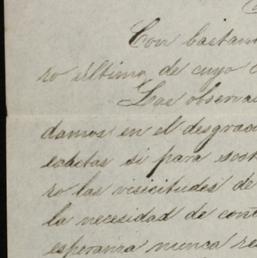 Con bastan
ro último, de cuyo c
Las observac
damos en el desgraci
exactas si para sost
ro las visicitudes de
la necesidad de con
esperanza nunca re